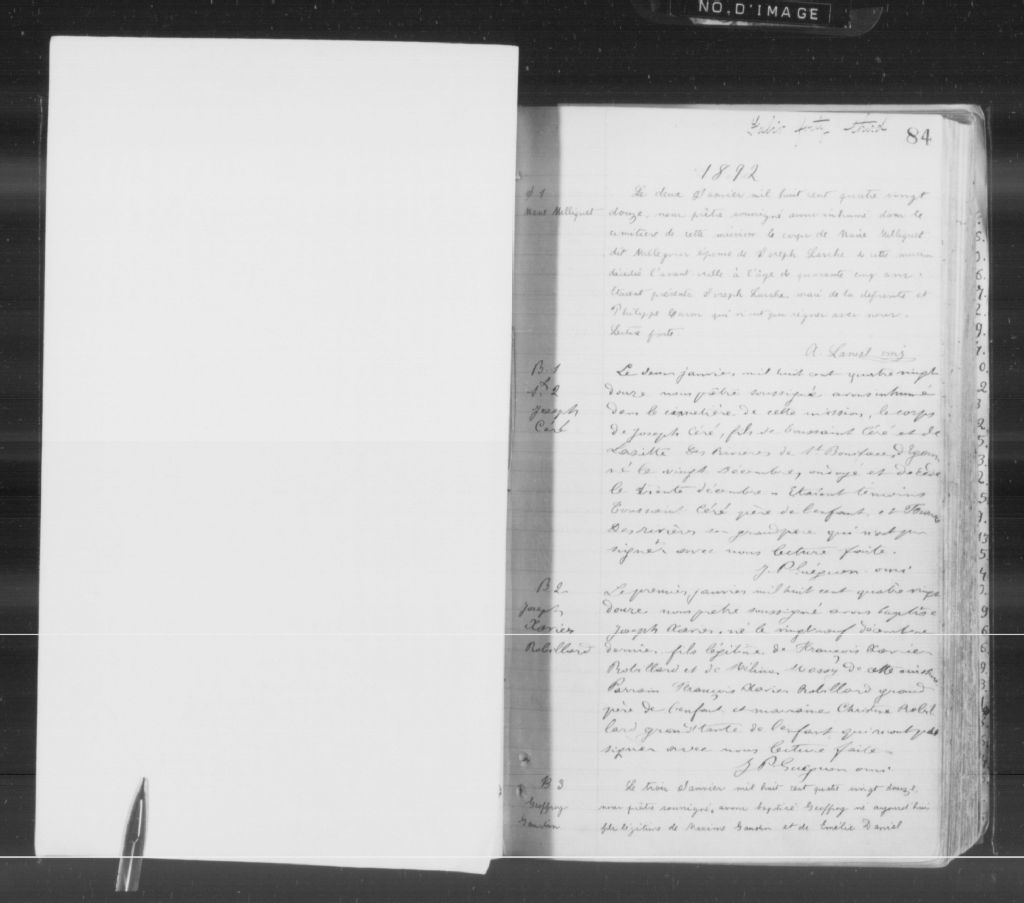 NO. D'IMAGE
84
1892
S 1
Marie Millequet
Le deux Janvier mil huit cent quatre vingt
douze, nous prêtre soussigné avons inhumé dans le
cimetière de cette mission le corps de Marie Millequet
dit épouse de Joseph Larche de cette mission
décédée l'avant veille à l'âge de quarante cinq ans.
Etaient présents Joseph Larche, mari de la défunte et
Philippe qui n'ont pu signer avec nous.
Lecture faite.
B. 1
S. 2
Joseph
Céré
Le deux janvier mil huit cent quatre vingt
douze nous prêtre soussigné avons inhumé
dans le cimetière de cette mission, le corps
de Joseph Céré, fils de Toussaint Céré et de
des Rivières de St Boniface d'Eganv
né le vingt décembre, ondoyé et décédé
le trente décembre. Etaient témoins
Toussaint Céré père de l'enfant, et
Desrivières son grandpère qui n'ont pu
signer avec nous lecture faite.
J. P. Guéguen omi
B 2
Joseph
Xavier
Robillard
Le premier janvier mil huit cent quatre vingt
douze nous prêtre soussigné avons baptisé
Joseph Xavier, né le vingt neuf décembre
dernier fils légitime de François Xavier
Robillard et de Mélina de cette mission
Parrain François Xavier Robillard grand
père de l'enfant et marraine Christine Robil
lard grand'tante de l'enfant qui n'ont pu
signer avec nous lecture faite
J P. Guéguen omi
B 3
Geoffroy
Le trois Janvier mil huit cent quatre vingt douze
nous prêtre soussigné, avons baptisé Geoffroy né aujourd'hui
fils légitime de et de Emélie Daniel